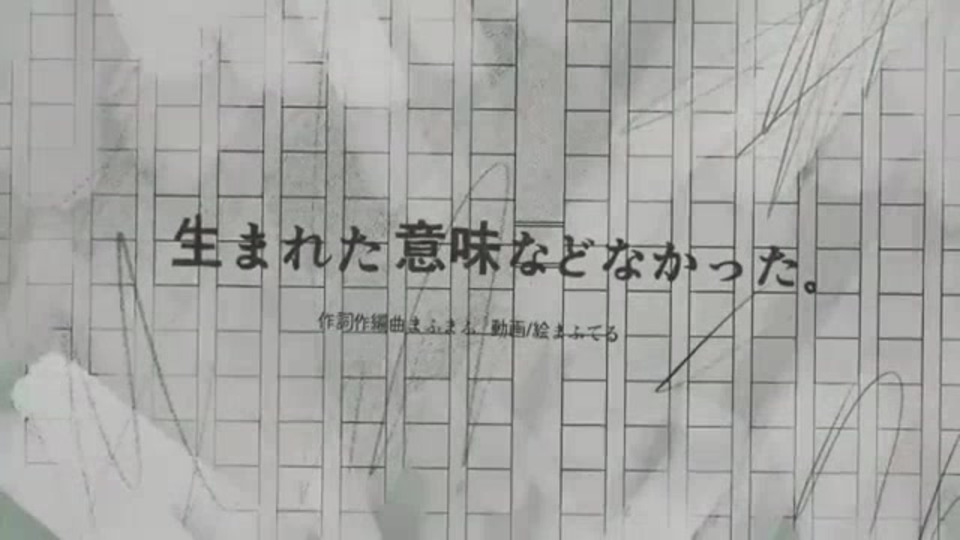 生まれた意味などなかった。
作詞作編曲まふまふ 動画/絵まふてる